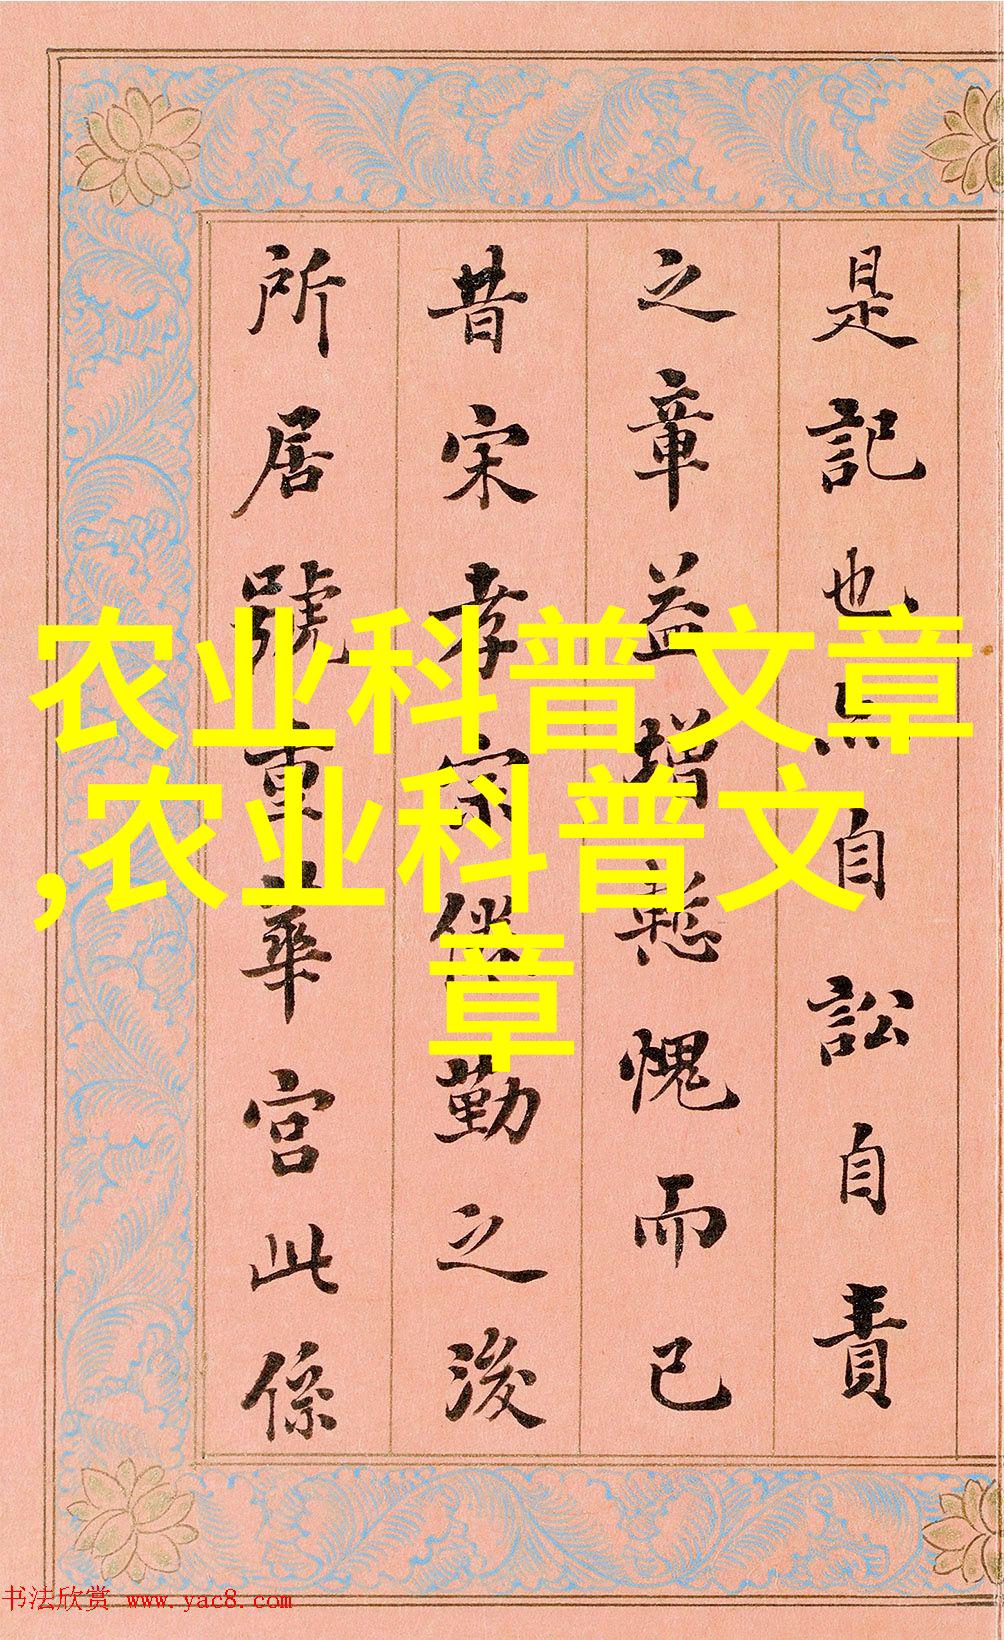 是記也自訟自責
之章益增慙愧而已
昔宋孝宗倦勤之後
所居號重華宮此係
农业科普文章
,农业科普文
章
书法欣赏 www.yac8.com